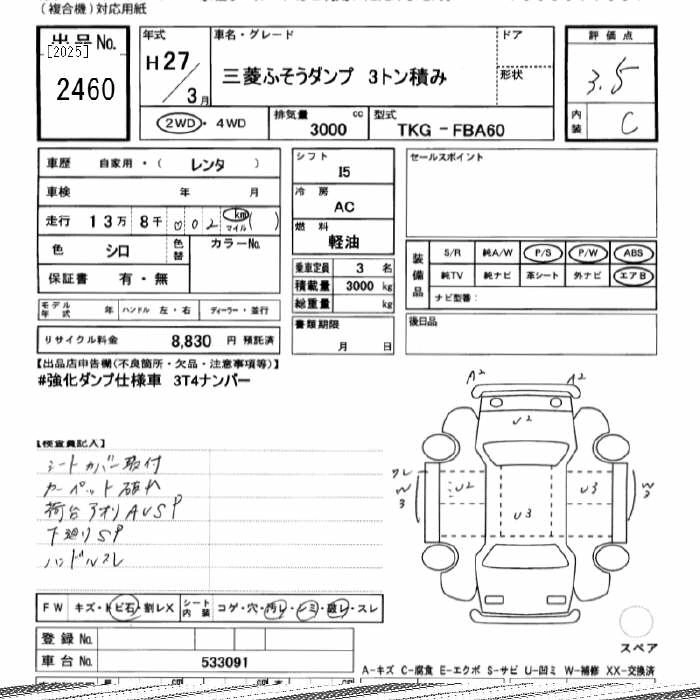 (複合機)対応用紙
出品No.
[2025]
2460
年式
H27/3月
車名・グレード
三菱ふそうダンプ 3トン積み
ドア
形状
評価点
3.5
内装
C
2WD・4WD
排気量 cc
3000
型式
TKG-FBA60
車歴 自家用・( レンタ )
車検 年 月
走行 13万 8千 002 km マイル ( )
色 シロ 色替 カラーNo.
保証書 有・無
モデル年式 年 ハンドル 左・右 ディーラー・並行
リサイクル料金 8,830 円 預託済
シフト
I5
冷房
AC
燃料
軽油
乗車定員 3 名
積載量 3000 kg
総重量 kg
書類期限
月 日
セールスポイント
装備品
S/R 純A/W P/S P/W ABS
純TV 純ナビ 革シート 外ナビ エアB
ナビ型番:
後日品
【出品店申告欄(不良箇所・欠品・注意事項等)】
#強化ダンプ仕様車 3T4ナンバー
【検査員記入】
シートカバー取付
カーペット破れ
荷台アオリAUSP
下廻りSP
ハンドルスレ
A2 A2
U2
スレ
W3
U2
U3
U3
W3
FW キズ・トビ石・割レX シート内装 コゲ・穴・汚レ・シミ・破レ・スレ
登録No.
車台No. 533091
スペア
A-キズ C-腐食 E-エクボ S-サビ U-凹ミ W-補修 XX-交換済